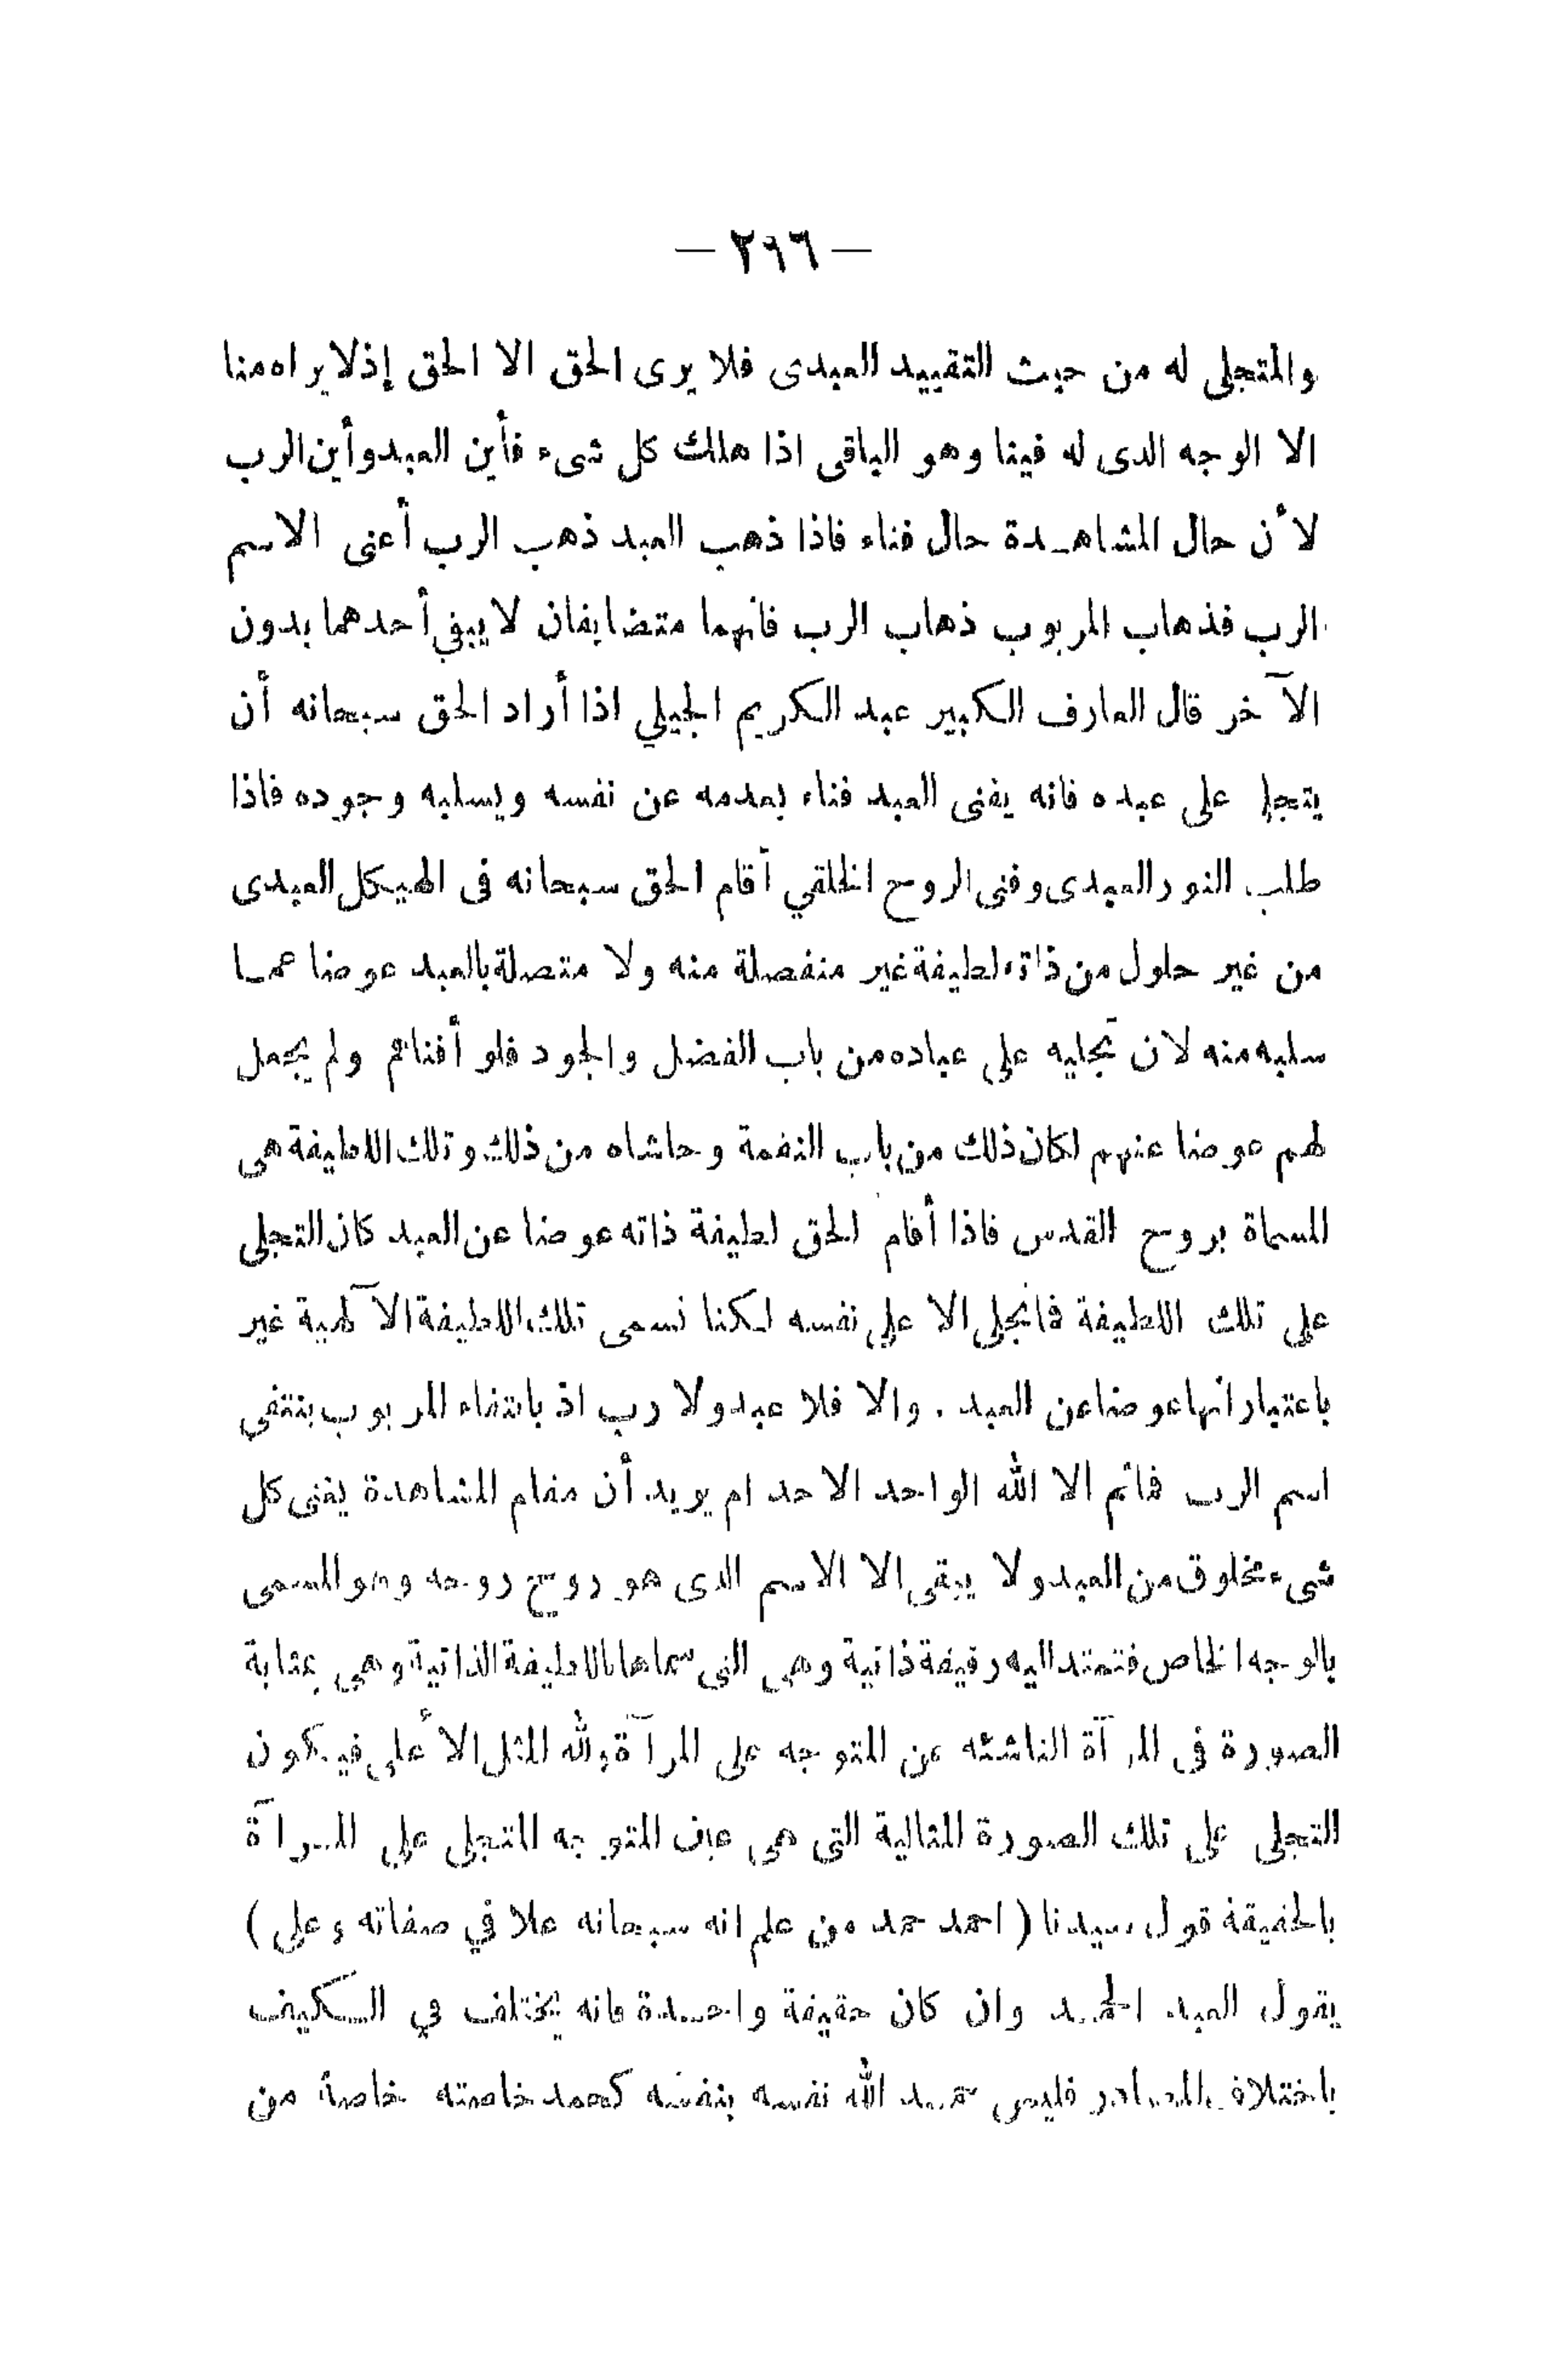 — ٢٩٦ —
والمتجلى له من حيث التقييد العبدى فلا يرى الحق الا الحق إذلا يراه منا
الا الوجه الذى له فينا وهو الباقى اذا هلك كل شىء فأين العبد وأين الرب
لأن حال المشاهدة حال فناء فاذا ذهب العبد ذهب الرب أعنى الاسم
الرب فذهاب المربوب ذهاب الرب فانهما متضايفان لا يبقى أحدهما بدون
الآخر قال العارف الكبير عبد الكريم الجيلي اذا أراد الحق سبحانه أن
يتجلى على عبده فانه يفنى العبد فناء يعدمه عن نفسه ويسلبه وجوده فاذا
طلب النور العبدى وفنى الروح الخلقي أقام الحق سبحانه فى الهيكل العبدى
من غير حلول من ذاته لطيفة غير منفصلة منه ولا متصلة بالعبد عوضا عما
سلبه منه لان تجليه على عباده من باب الفضل والجود فلو أفناهم ولم يجعل
لهم عوضا عنهم لكان ذلك من باب النقمة وحاشاه من ذلك وتلك اللطيفة هى
المسماة بروح القدس فاذا أقام الحق لطيفة ذاته عوضا عن العبد كان التجلى
على تلك اللطيفة فما تجلى الا على نفسه لكنا نسمى تلك اللطيفة الآلهية غير
باعتبار انها عوضا عن العبد . والا فلا عبد ولا رب اذ بانتفاء المربوب ينتفى
اسم الرب فما ثم الا الله الواحد الاحد اه يريد أن مقام المشاهدة يفنى كل
شىء مخلوق من العبد ولا يبقى الا الاسم الذى هو روح روحه وهو المسمى
بالوجه الخاص فتمتد اليه رقيقة ذاتية وهى التى سماها باللطيفة الذاتية وهى بمثابة
الصورة فى المرآة الناشئه عن المتوجه على المرآة ولله المثل الأعلى فيكون
التجلى على تلك الصورة المثالية التى هى عين المتوجه المتجلى على المرآة
بالحقيقة قول سيدنا ( احمد حمد من علم انه سبحانه علا في صفاته وعلى )
يقول العبد الحمد وان كان حقيقة واحدة فانه يختلف في التكييف
باختلاف المصادر فليس حمد الله نفسه بنفسه كحمد خاصته خاصة من